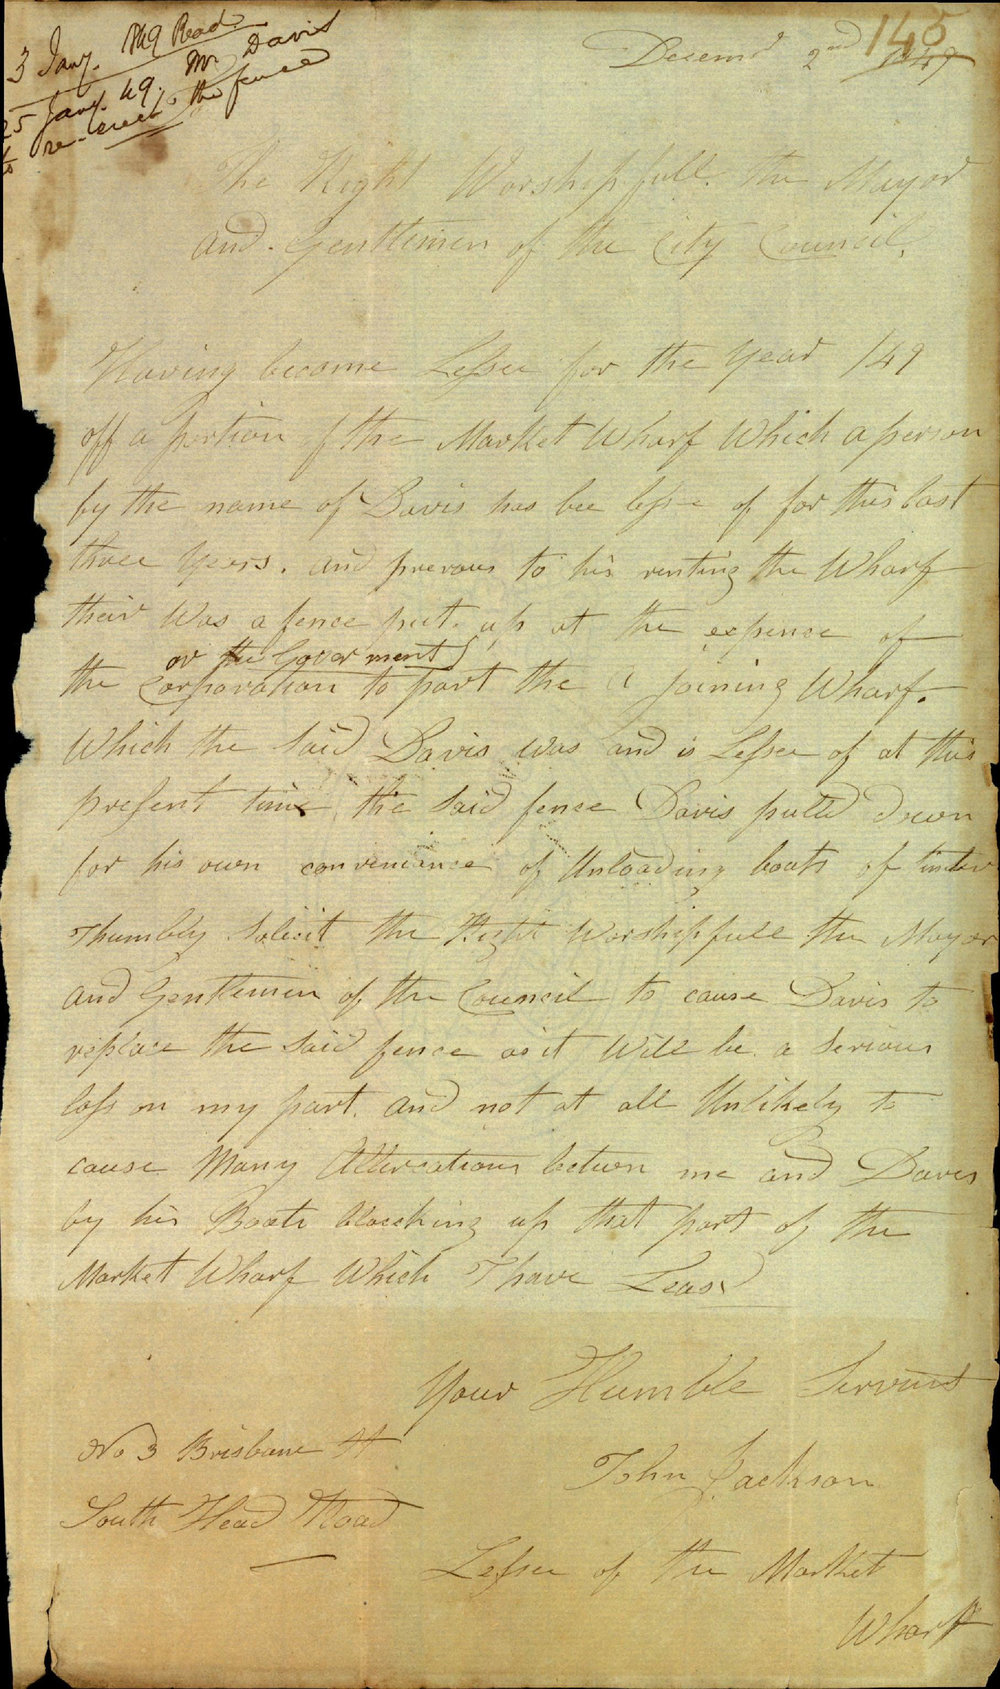 3 Jany. 1849 Read
25 Jany. 49. Mr Davis
to re-erect the fence
145
Decemr 2nd
The Right Worshipfull the Mayor
and Gentlemen of the City Council.
Having become Lessee for the Year 149
off a portion of the Market Wharf Which a person
by the name of Davis has bee lesse of for this last
three Years. and prevous to his renting the Wharf
their Was a fence put up at the expence of
or the Goverment
the Corporation to part the a joining Wharf.
Which the Said Davis was and is Lessee of at this
present time the Said fence Davis pulld down
for his own convenience of Unloading boats of timber
I humbly Solicit the Right Worshipfull the Mayor
and Gentlemen of the Council to cause Davis to
replace the Said fence as it Will be a Serious
loss on my part. and not at all Unlikely to
cause Many Altercations between me and Daves
by his Boats Blocking up that part of the
Market Wharf Which I have Leasd
Your Humble Servant
No 3 Brisbane St
John Jackson
South Head Road
Lessee of the Market
Wharf